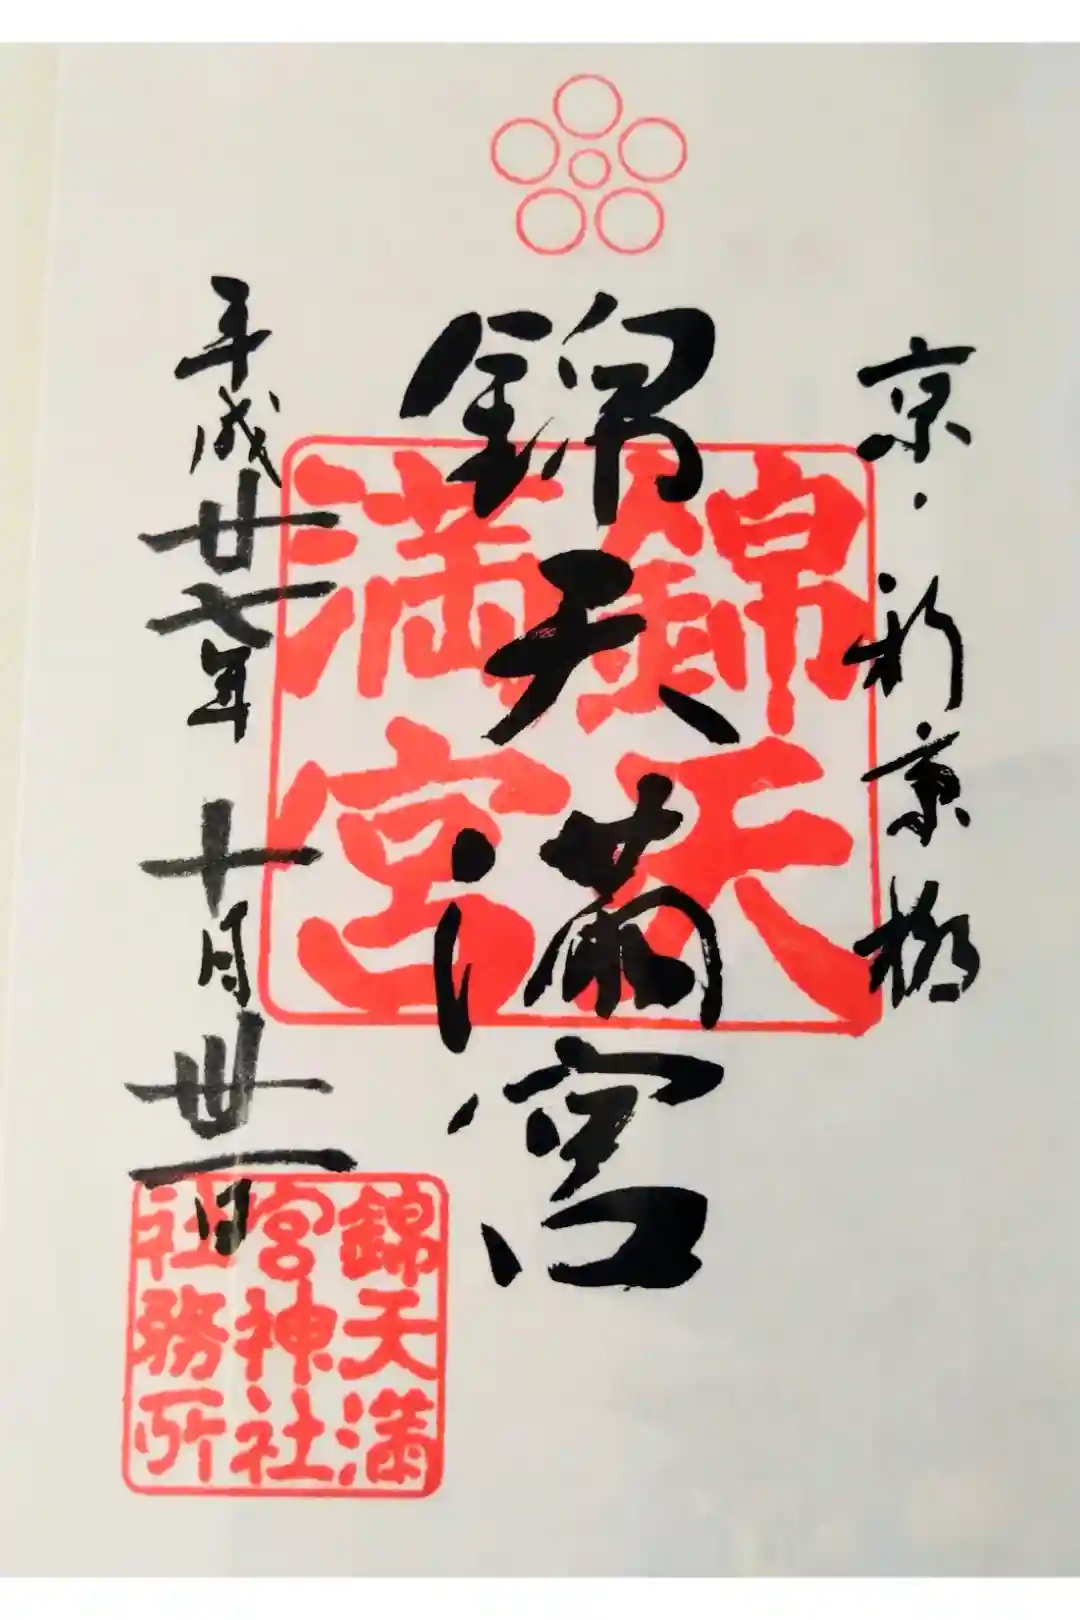 京・新京極
錦天満宮
錦天
満宮
平成廿七年 十月卅一日
錦天満
宮神社
社務所